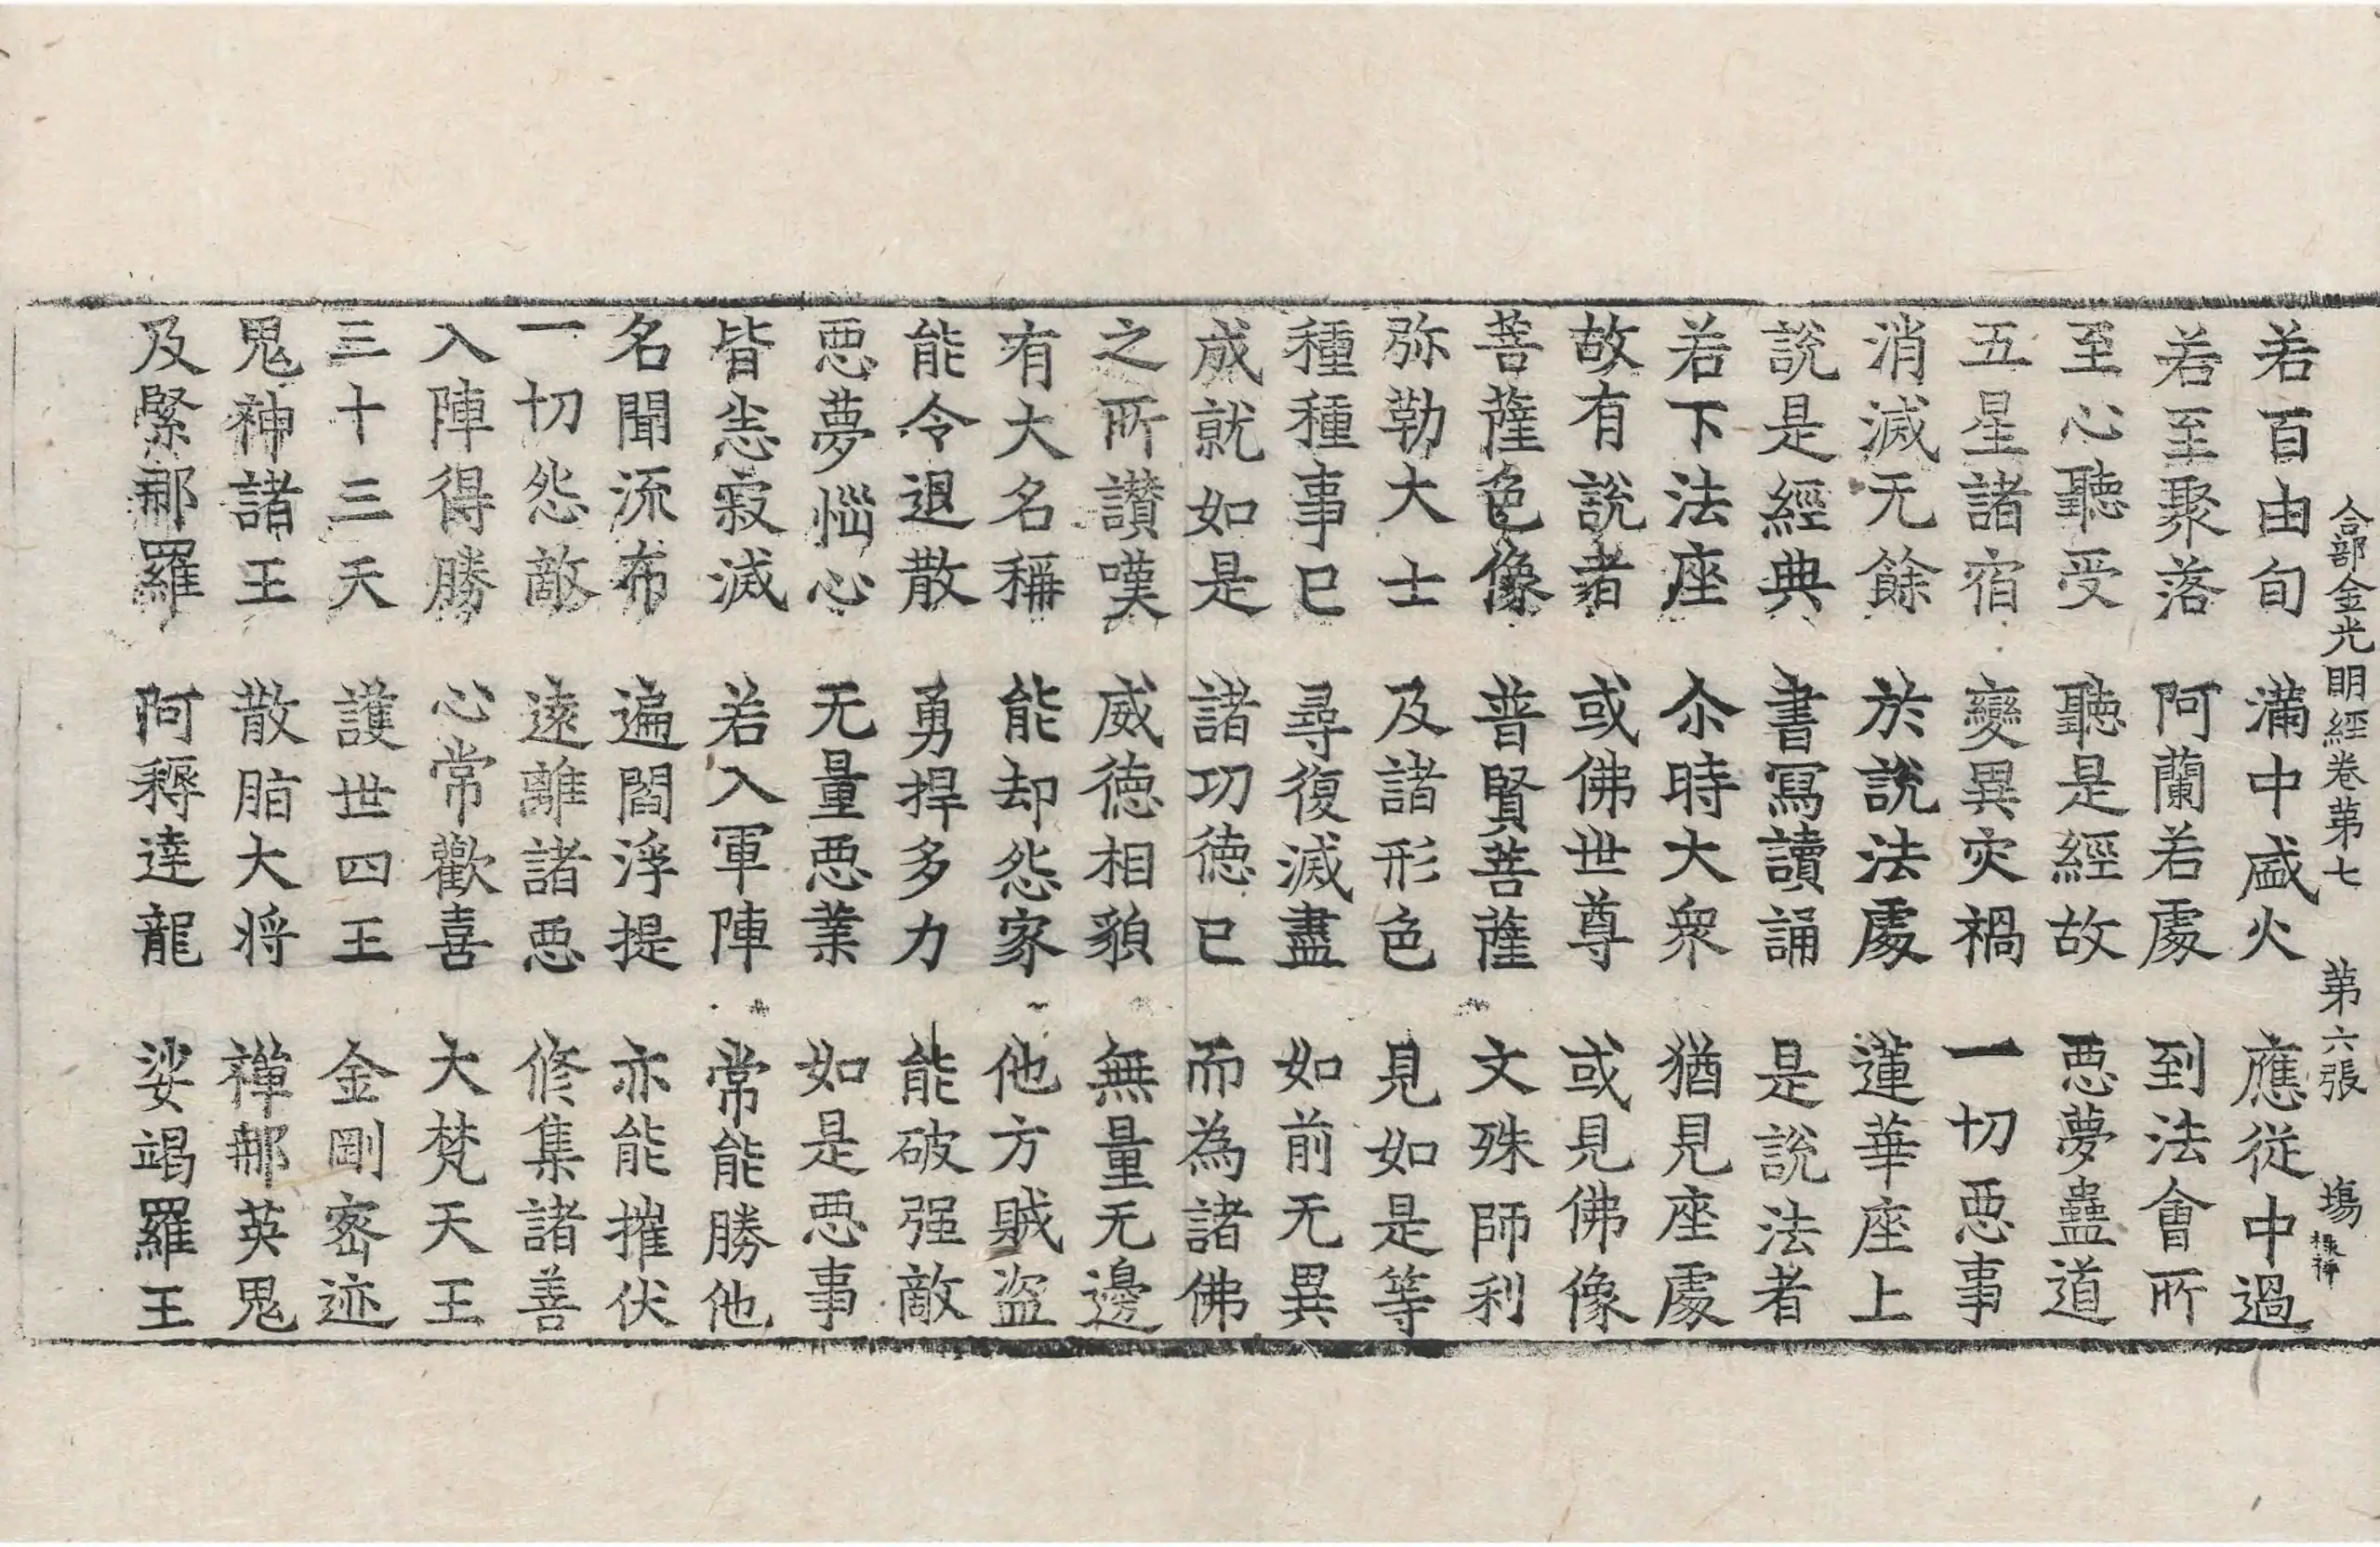 合部金光明經卷第七 第六張 塲
若百由旬 滿中盛火 應從中過
若至聚落 阿蘭若處 到法會所
至心聽受 聽是經故 惡夢蠱道
五星諸宿 變異灾禍 一切惡事
消滅无餘 於說法處 蓮華座上
說是經典 書寫讀誦 是說法者
若下法座 尒時大衆 猶見座處
故有說者 或佛世尊 或見佛像
菩薩色像 普賢菩薩 文殊師利
弥勒大士 及諸形色 見如是等
種種事已 尋復滅盡 如前无異
成就如是 諸功德已 而為諸佛
之所讃嘆 威德相貌 無量无邊
有大名稱 能却怨家 他方賊盗
能令退散 勇捍多力 能破强敵
惡夢惱心 无量惡業 如是惡事
皆悉寂滅 若入軍陣 常能勝他
名聞流布 遍閻浮提 亦能摧伏
一切怨敵 遠離諸惡 修集諸善
入陣得勝 心常歡喜 大梵天王
三十三天 護世四王 金剛密迹
鬼神諸王 散脂大将 禪那英鬼
及緊那羅 阿耨達龍 娑竭羅王